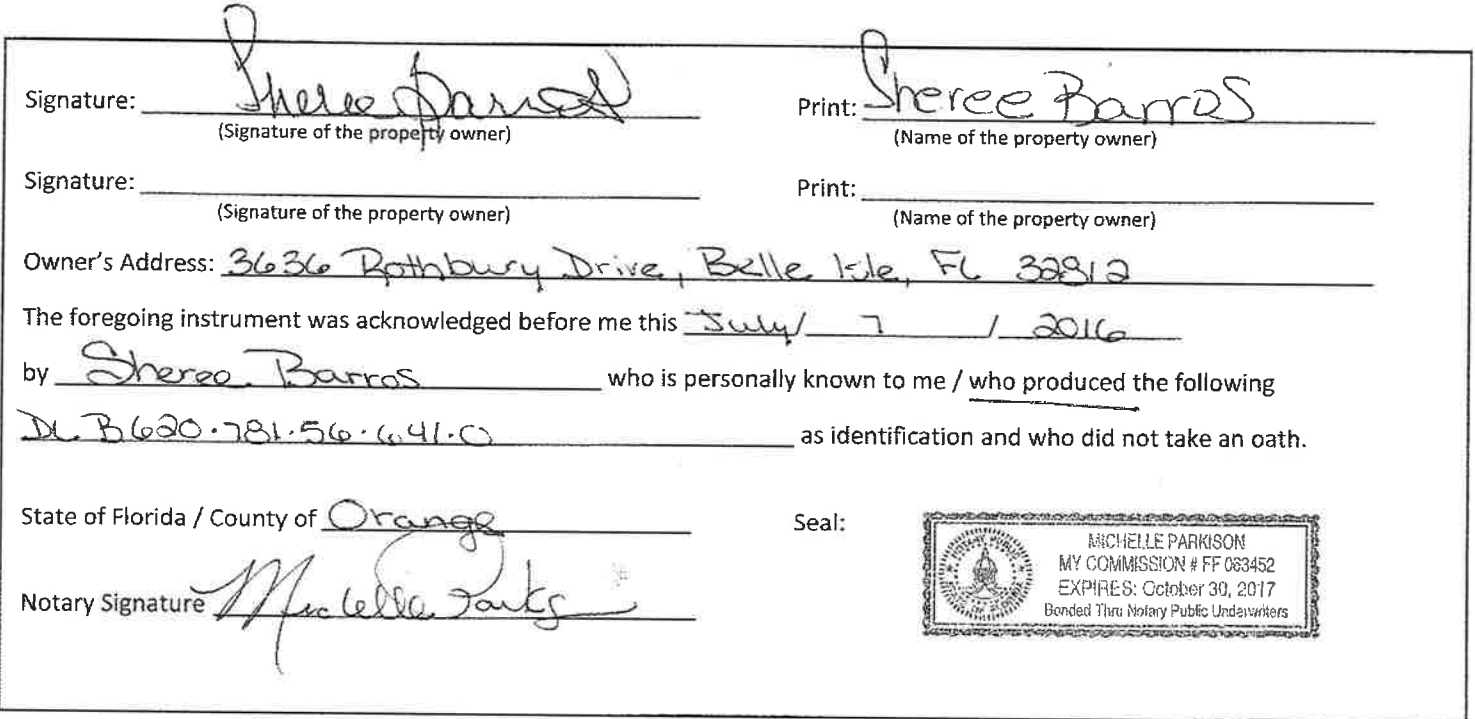 Signature: Sheree Barros Print: Sheree Barros
(Signature of the property owner) (Name of the property owner)
Signature: Print:
(Signature of the property owner) (Name of the property owner)
Owner's Address: 3636 Rothbury Drive, Belle Isle, FL 32812
The foregoing instrument was acknowledged before me this July / 7 / 2016
by Sheree Barros who is personally known to me / who produced the following
DL B620.781.56.641.0 as identification and who did not take an oath.
State of Florida / County of Orange Seal:
MICHELLE PARKISON
MY COMMISSION # FF 063452
EXPIRES: October 30, 2017
Bonded Thru Notary Public Underwriters
Notary Signature Michelle